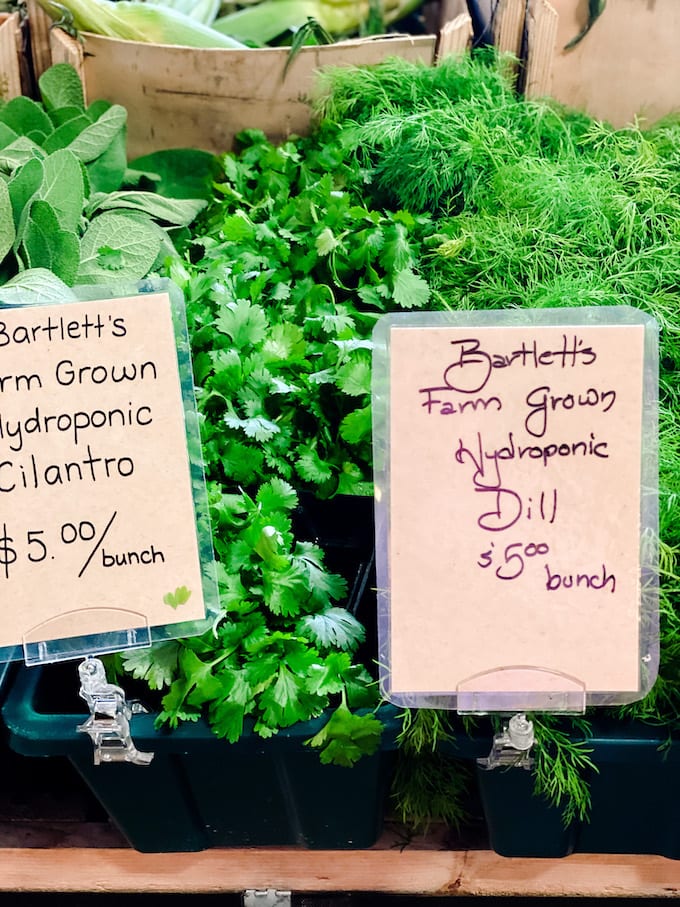 Bartlett's
rm Grown
ydroponic
Cilantro
$5.00/bunch
Bartlett's
Farm Grown
Hydroponic
Dill
$5.00
bunch